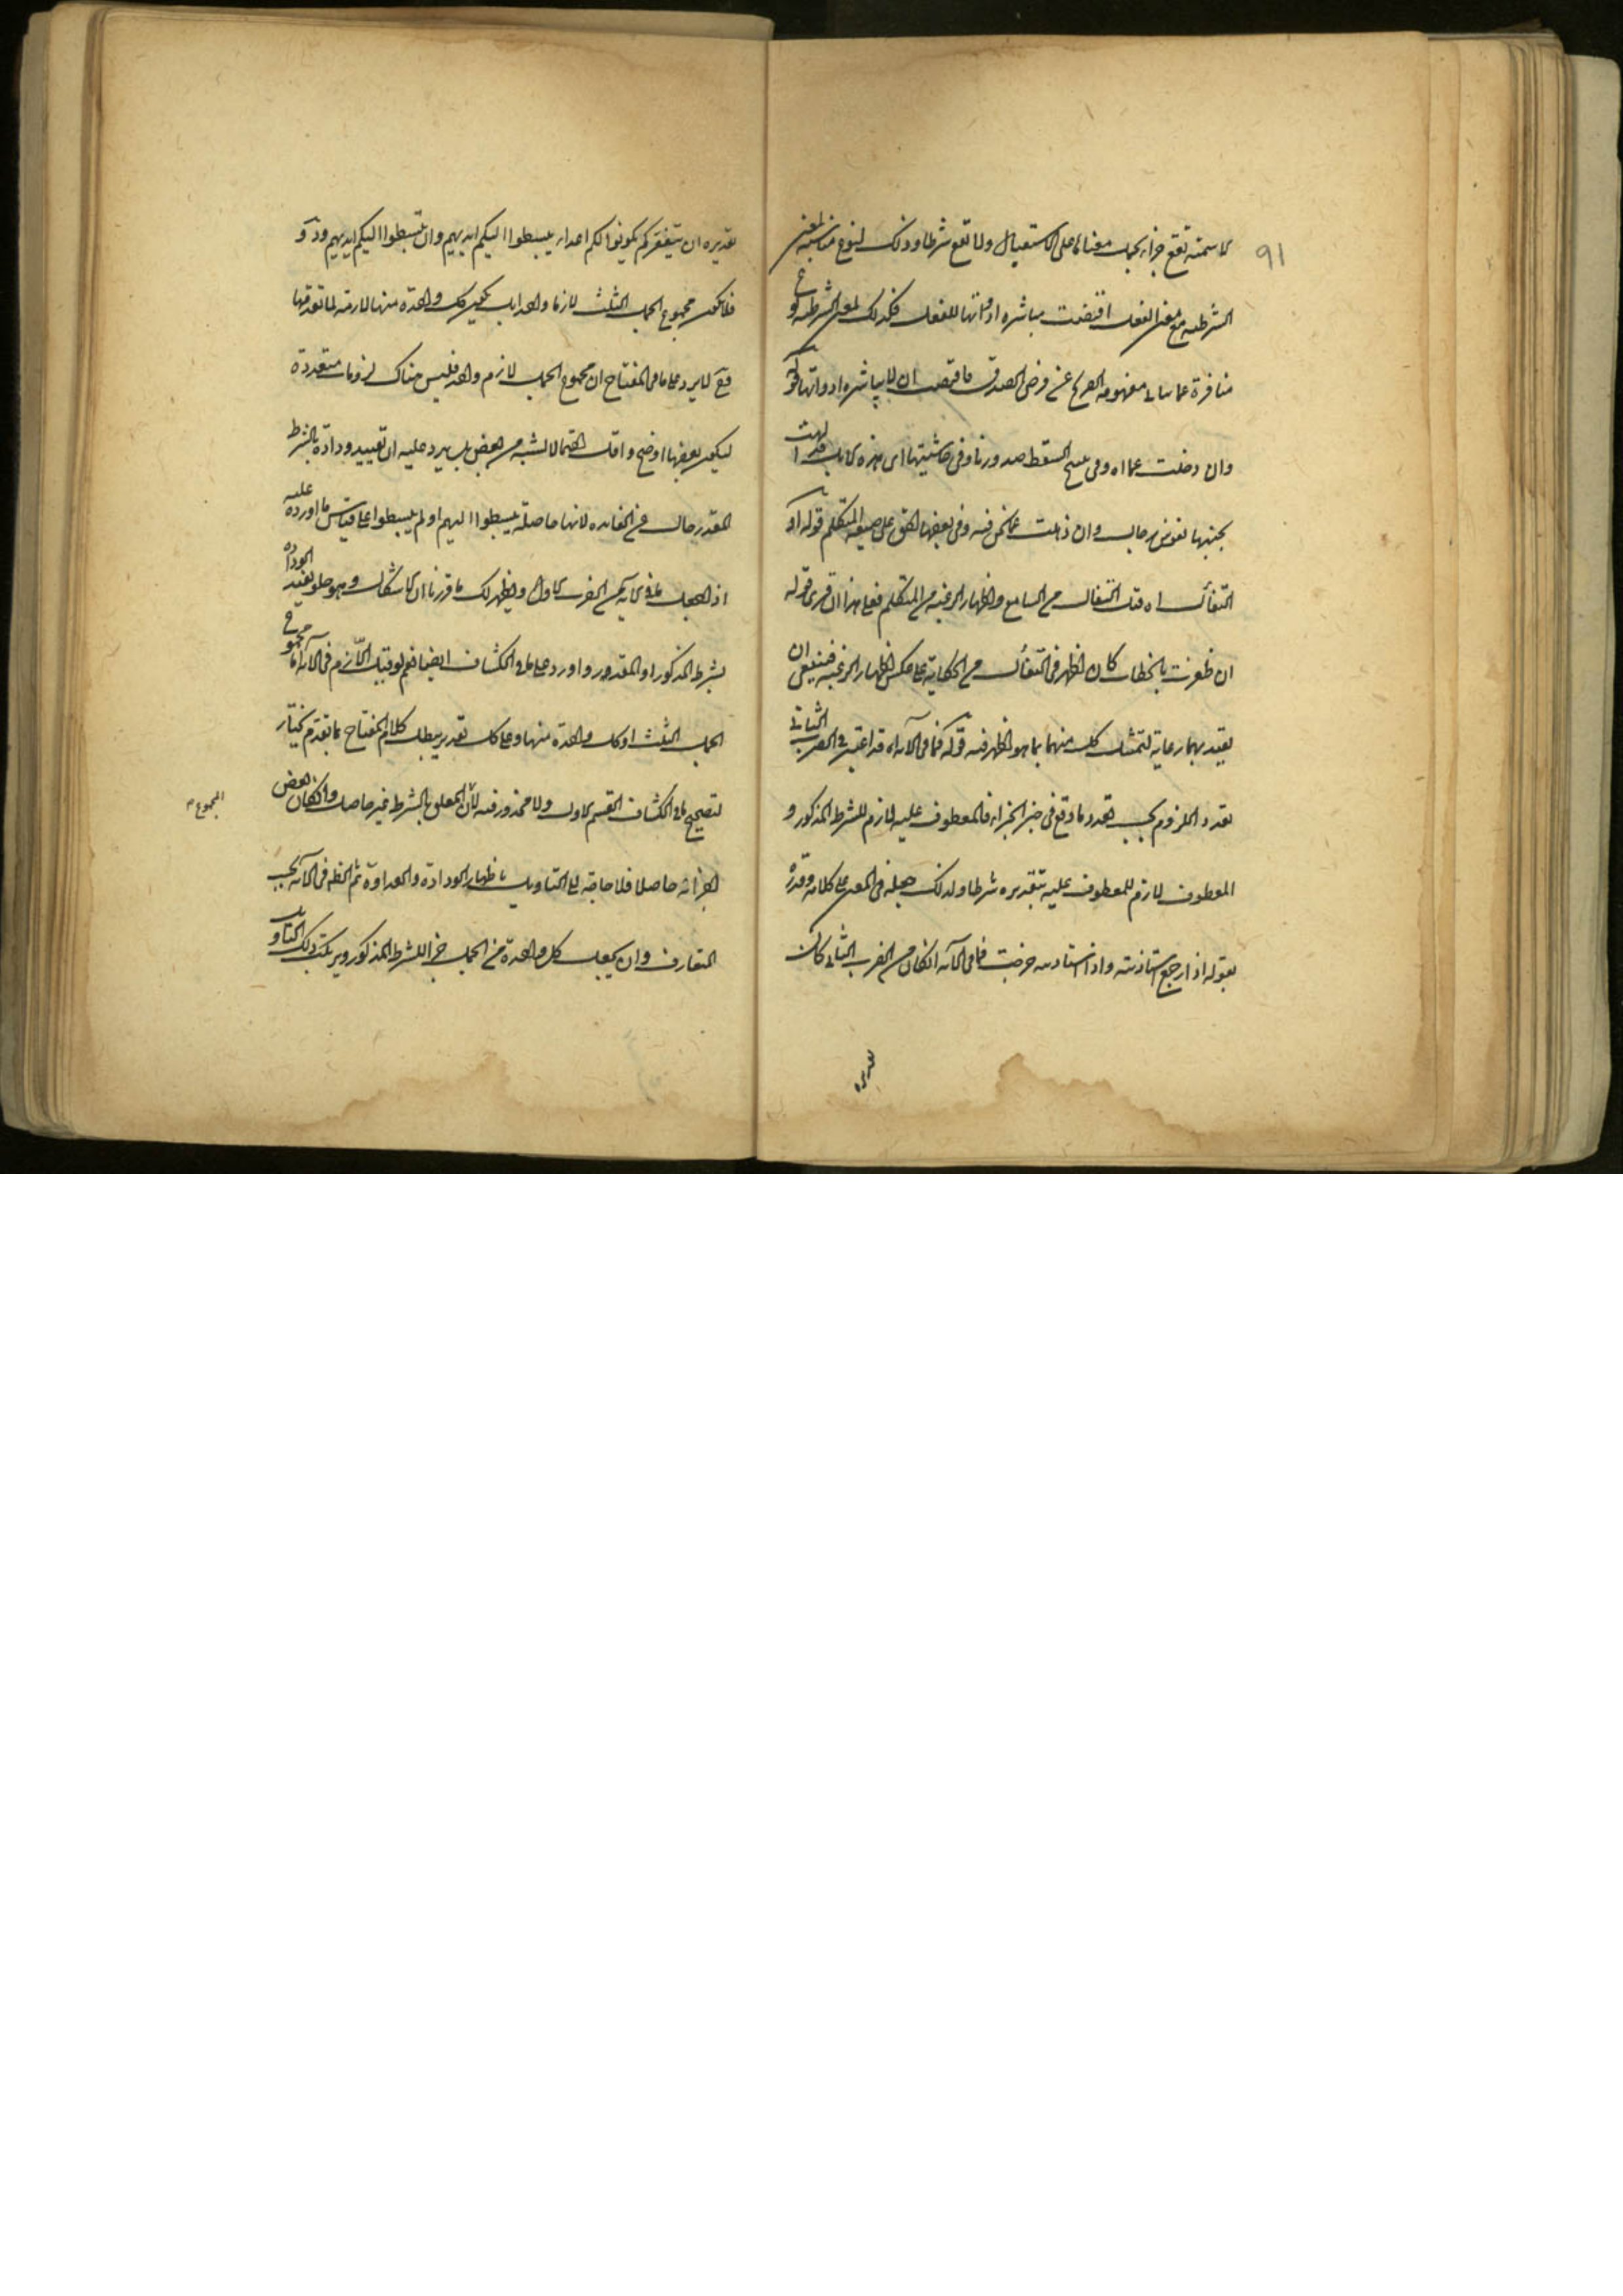 ٩١
الاسمية تقع جزاء بجمل معناها على الاستقبال ولا تقع شرطا وذلك لنوع مناسبة لمعنى
الشرطية مع معنى الفعل اقتضت مباشرة ادواتها للفعل فكذلك لمعنى الشرطية نوع
منافرة عما مفهومه الصريح عن فرض الصدق فاقتضت ان لا يباشره ادواتها قوله
وان دخلت عما اه وفى نسخ السقط صدورنا وفى حاشيتها اى هذه الابل قد لهت
بجنبها نفوس رجال وان ذهلت عما نحن فيه وفى بعضها اتفق على صيغة المتكلم قوله او
التفأل اه قيل التفأل من السامع واظهار الرغبة من المتكلم فعلى هذا ان قرئ قوله
ان ظفرت بالخطاب كان اظهر فى التفأل من الحكاية على عكس اظهار الرغبة فينبغى ان
يقيد بهما رعاية لتمثيل كل منهما بما هو اظهر فيه قوله فما فى الآية اه قد اعتبر فى الضرب الثانى
تعدد الملزوم بحسب تعدد ما وقع فى حيز الجزاء فالمعطوف عليه لازم للشرط المذكور و
المعطوف لازم للمعطوف عليه بتقديره شرطا ولذلك جعله فى المعنى على كلامين وقدره
بقوله اذا رجع استاذنته واذا استاذنته خرجت فما فى الآية ان كان من الضرب الثانى كان
تقديره
تقديره ان يثقفوكم يكونوا لكم اعداء يبسطوا اليكم ايديهم وان يبسطوا اليكم ايديهم ودوا
فلا يكون مجموع الجمل الثلث لازما واحدا بل يكون كل واحدة منها لازمة لما تقدمها
فح لا يرد على ما فى المفتاح ان مجموع الجمل لازم واحد فليس هناك لزومات متعددة
ليكون بعضها اوضح واقل احتمالا لشبه من بعض بل يرد عليه ان تقييد ودادة بالشرط
المقدر خال عن الفائدة لانها حاصلة يبسطوا اليهم او لم يبسطوا على قياس ما اورده عليه
اذا جعل ما فى الآية من الضرب الاول ويظهر لك ما قررنا ان الاشكال وهو خلو تقييد الودادة
بشرط المذكور او المقدر وارد على ما فى الكشاف ايضا نعم لو قيل اللازم فى الآية اما مجموع
الجمل الثلث او كل واحدة منها وعلى كل تقدير يبطل كلام المفتاح بما تقدم نختار
لتصحيح ما فى الكشاف القسم الاول ولا محذور فيه لان المعلق بالشرط غير حاصل وان كان بعض
المجموع
اجزائه حاصلا فلا حاجة الى التاويل باظهار الودادة والعداوة ثم الظاهر فى الآية بحسب
المتعارف وان يجعل كل واحدة من الجمل جزاء للشرط المذكور ويرتكب ذلك التاويل